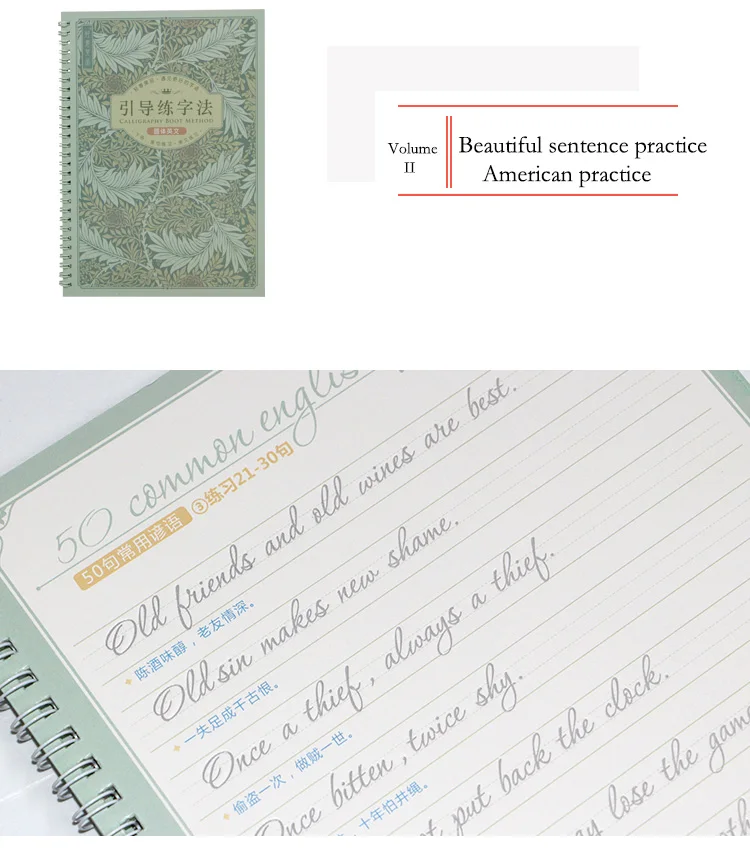 引导练字法
CALLIGRAPHY BOOT METHOD
Volume
II
Beautiful sentence practice
American practice
50 common englis
50句常用谚语 ③练习21-30句
Old friends and old wines are best.
陈酒味醇，老友情深。
Old sin makes new shame.
一失足成千古恨。
Once a thief, always a thief.
偷盗一次，做贼一世。
Once bitten, twice shy.
十年怕井绳。
put back the clock.
lose the gam